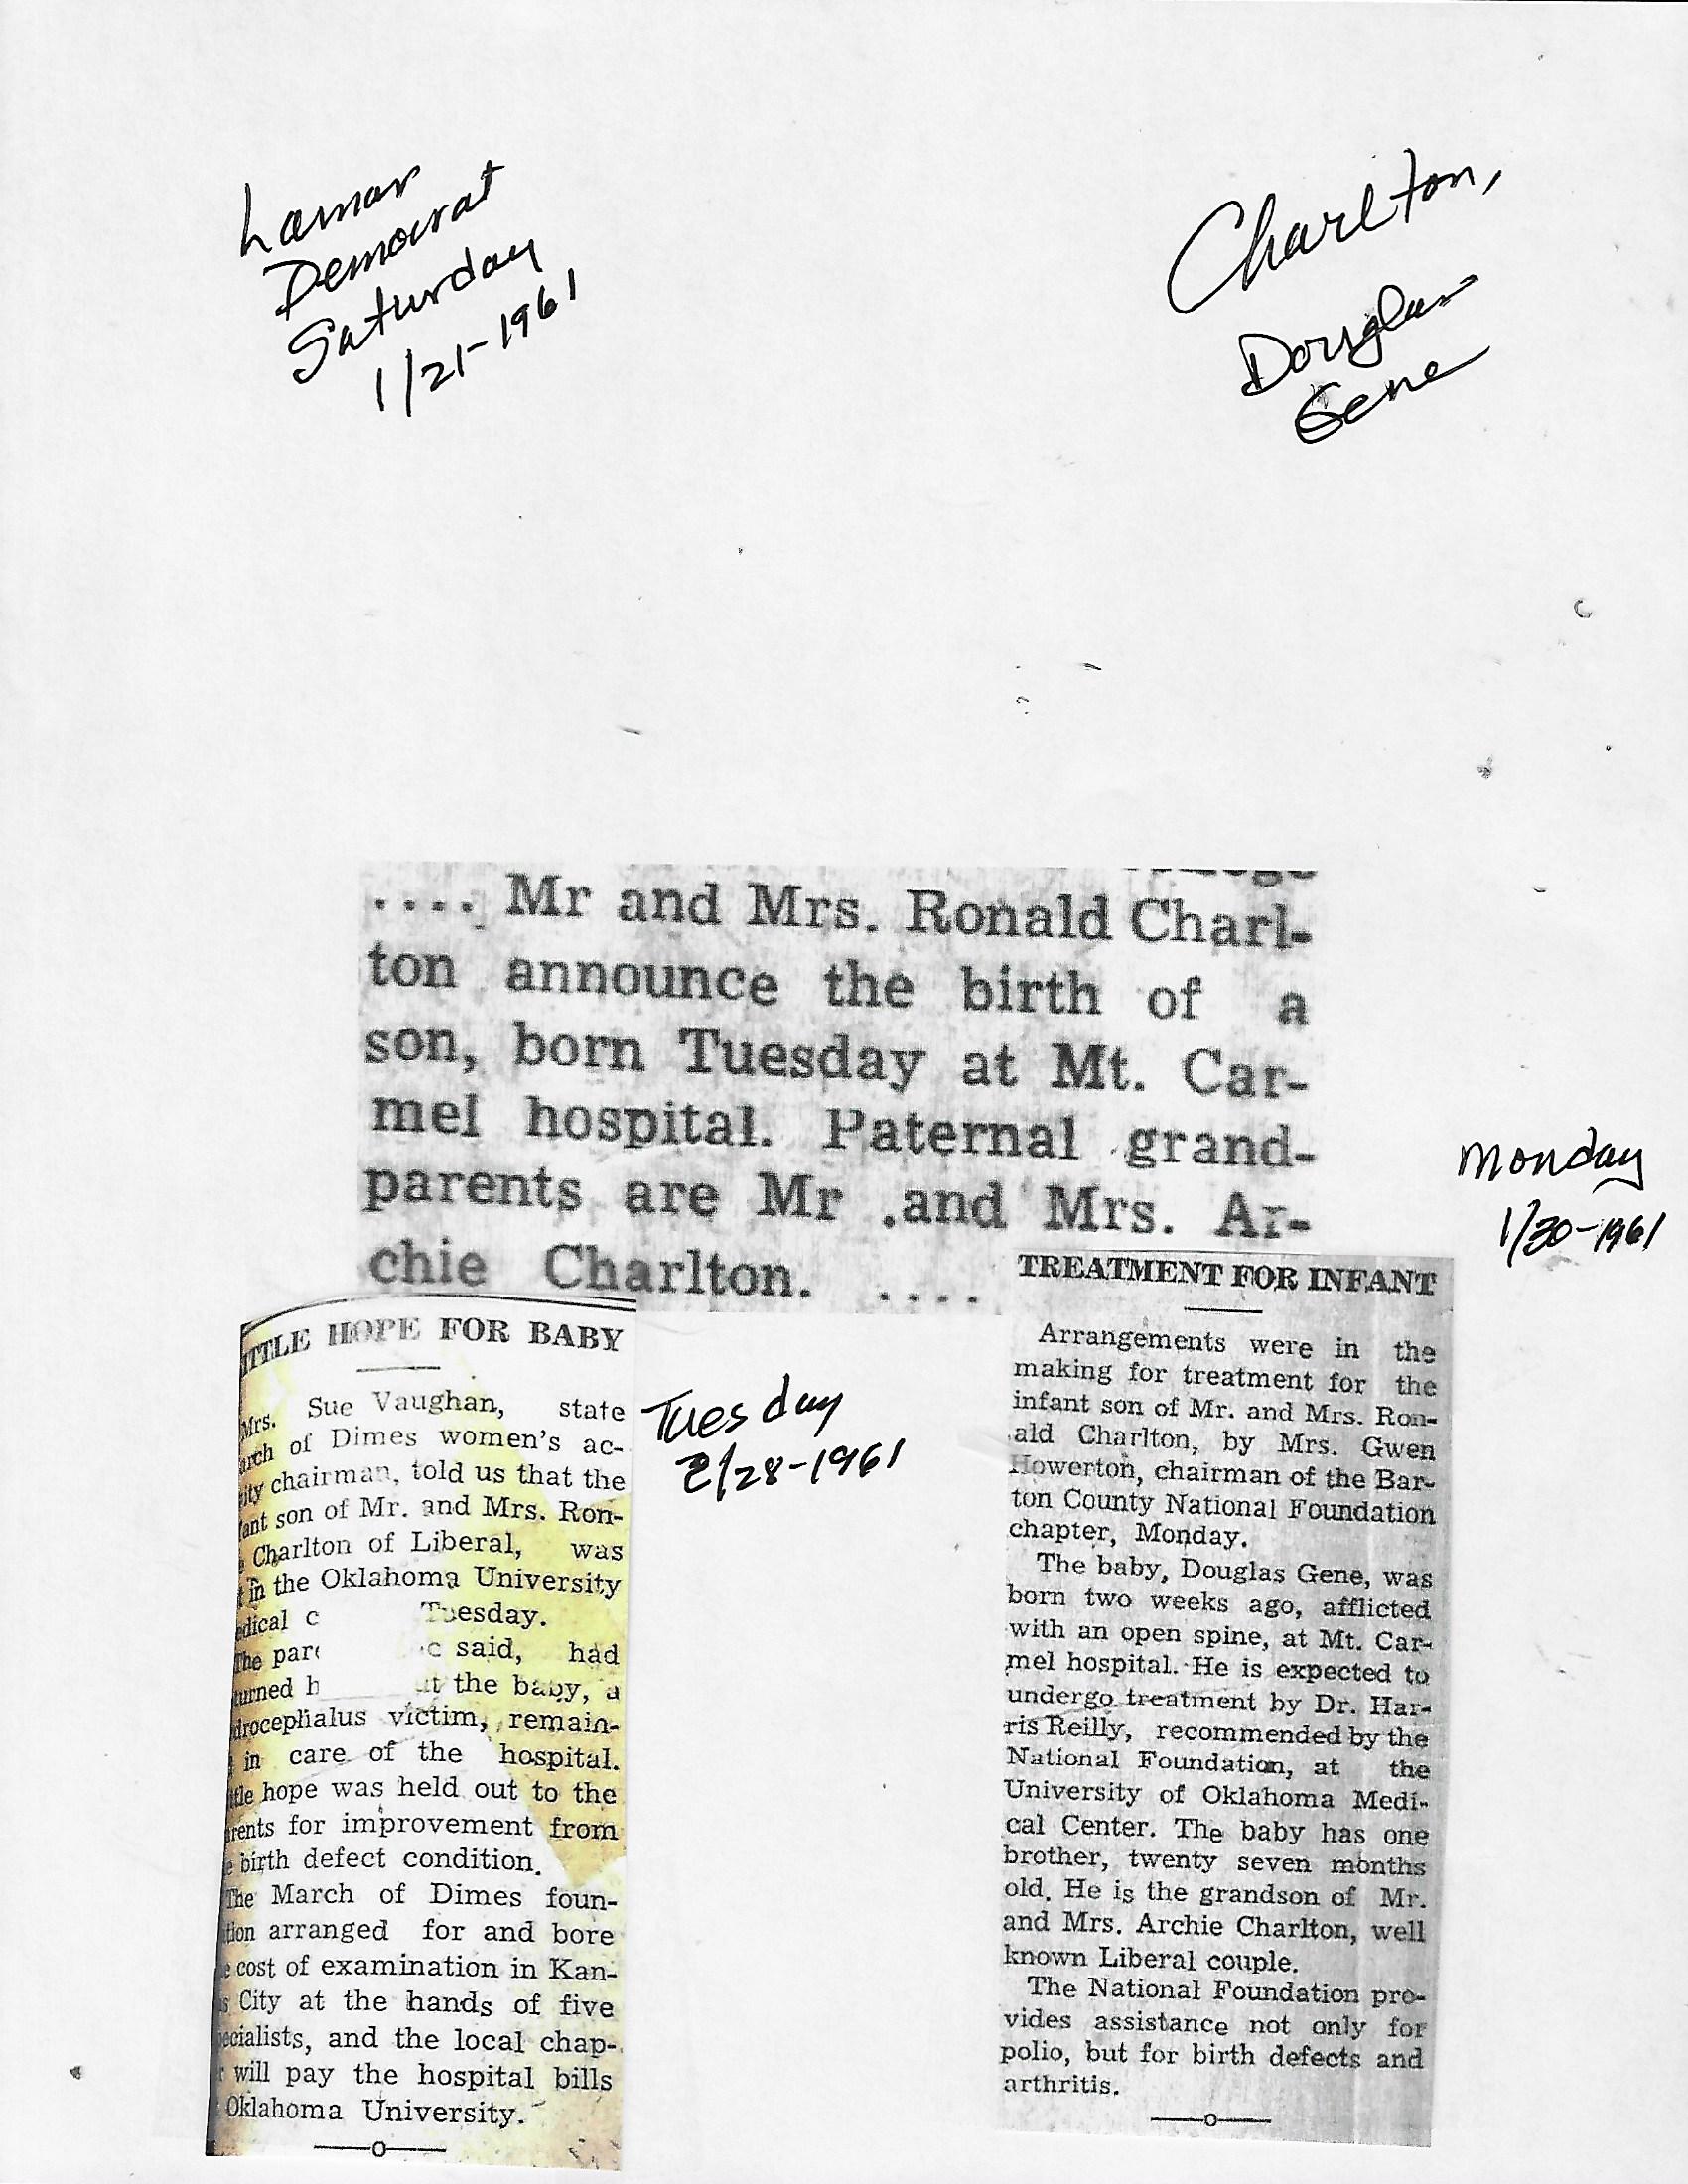 Lamar
Democrat
Saturday
1/21-1961
Charlton,
Douglas
Gene
.... Mr and Mrs. Ronald Charl-
ton announce the birth of a
son, born Tuesday at Mt. Car-
mel hospital. Paternal grand-
parents are Mr .and Mrs. Ar-
chie Charlton. ....
Monday
1/30-1961
ITTLE HOPE FOR BABY
Mrs. Sue Vaughan, state
arch of Dimes women's ac-
ity chairman, told us that the
fant son of Mr. and Mrs. Ron-
Charlton of Liberal, was
t in the Oklahoma University
edical c Tuesday.
The par said, had
turned h ut the baby, a
drocephalus victim, remain-
in care of the hospital.
ttle hope was held out to the
arents for improvement from
e birth defect condition.
The March of Dimes foun-
tion arranged for and bore
e cost of examination in Kan-
s City at the hands of five
pecialists, and the local chap-
r will pay the hospital bills
Oklahoma University.
Tuesday
2/28-1961
TREATMENT FOR INFANT
Arrangements were in the
making for treatment for the
infant son of Mr. and Mrs. Ron-
ald Charlton, by Mrs. Gwen
Howerton, chairman of the Bar-
ton County National Foundation
chapter, Monday.
The baby, Douglas Gene, was
born two weeks ago, afflicted
with an open spine, at Mt. Car-
mel hospital. He is expected to
undergo treatment by Dr. Har-
ris Reilly, recommended by the
National Foundation, at the
University of Oklahoma Medi-
cal Center. The baby has one
brother, twenty seven months
old. He is the grandson of Mr.
and Mrs. Archie Charlton, well
known Liberal couple.
The National Foundation pro-
vides assistance not only for
polio, but for birth defects and
arthritis.